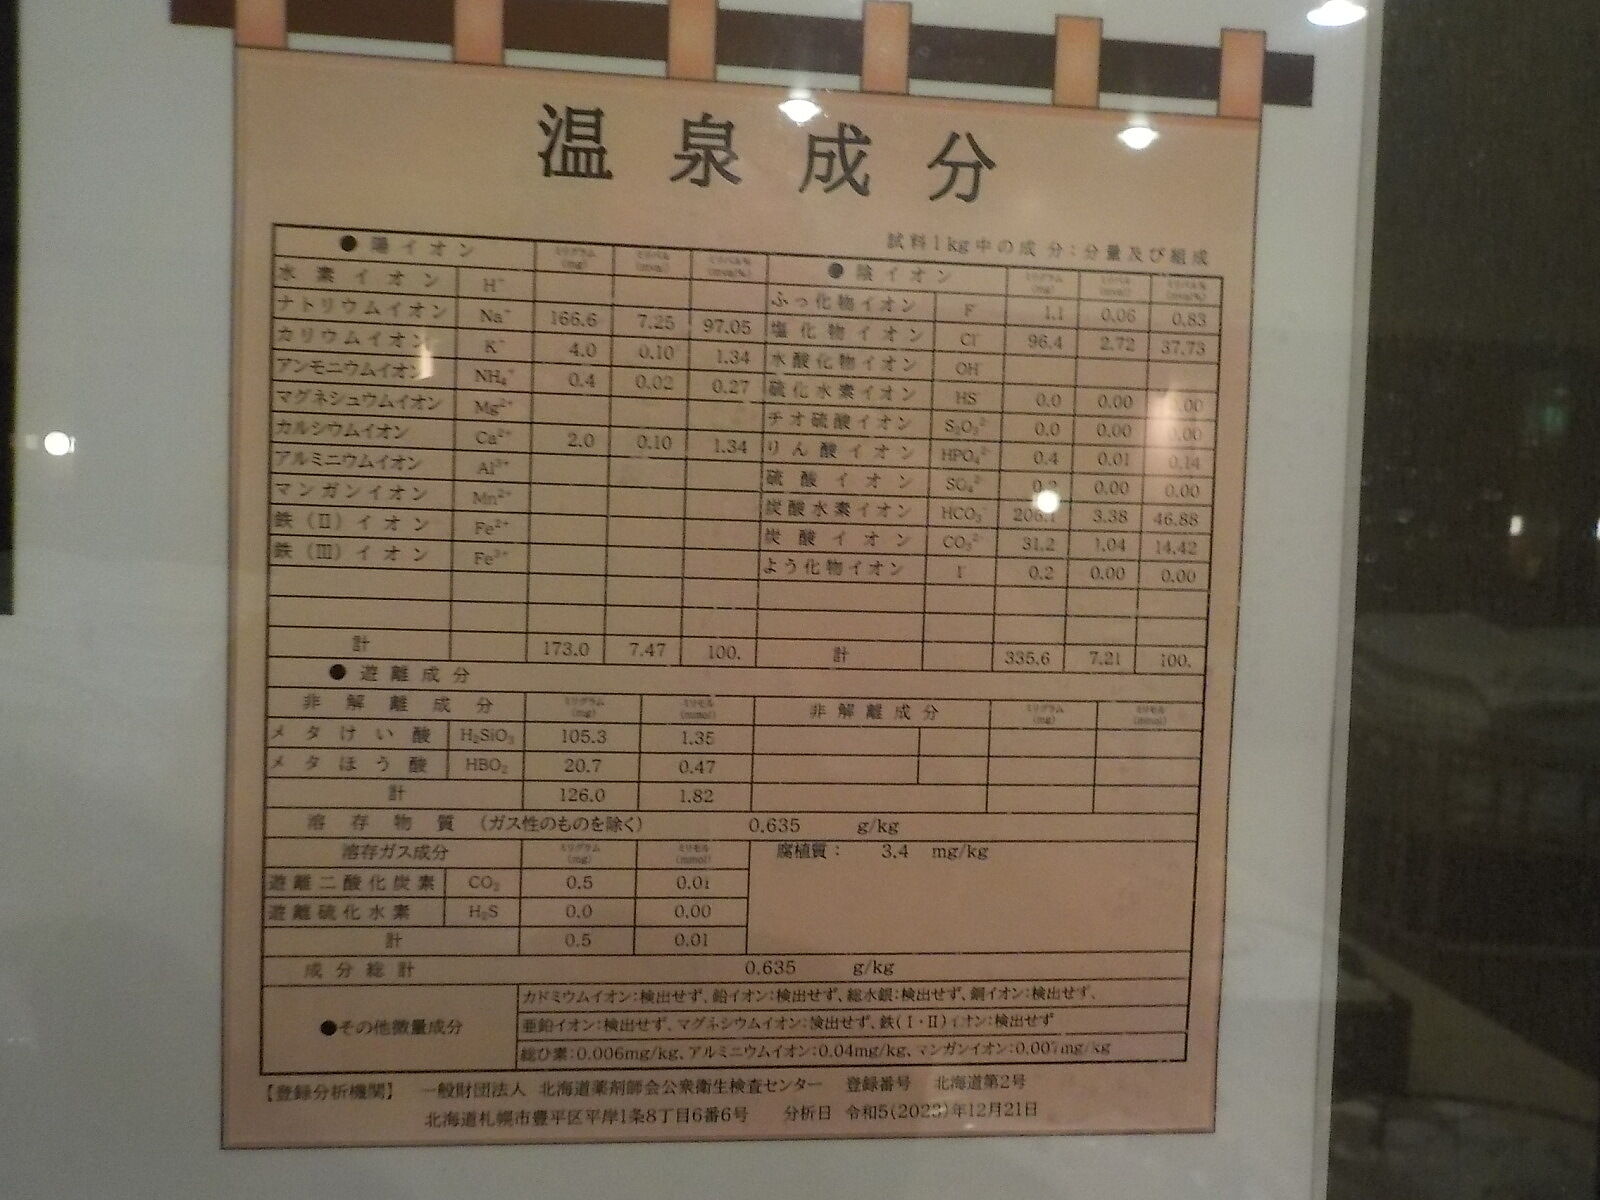 温泉成分
試料1kg中の成分:分量及び組成
●陽イオン ミリグラム(mg) ミリバル(mval) ミリバル%(mval%) ●陰イオン ミリグラム(mg) ミリバル(mval) ミリバル%(mval%)
水素イオン H⁺ ふっ化物イオン F⁻ 1.1 0.06 0.83
ナトリウムイオン Na⁺ 166.6 7.25 97.05 塩化物イオン Cl⁻ 96.4 2.72 37.73
カリウムイオン K⁺ 4.0 0.10 1.34 水酸化物イオン OH⁻
アンモニウムイオン NH₄⁺ 0.4 0.02 0.27 硫化水素イオン HS⁻ 0.0 0.00 0.00
マグネシュウムイオン Mg²⁺ チオ硫酸イオン S₂O₃²⁻ 0.0 0.00 0.00
カルシウムイオン Ca²⁺ 2.0 0.10 1.34 りん酸イオン HPO₄²⁻ 0.4 0.01 0.14
アルミニウムイオン Al³⁺ 硫酸イオン SO₄²⁻ 0.00 0.00
マンガンイオン Mn²⁺ 炭酸水素イオン HCO₃⁻ 3.38 46.88
鉄(II)イオン Fe²⁺ 炭酸イオン CO₃²⁻ 31.2 1.04 14.42
鉄(III)イオン Fe³⁺ よう化物イオン I⁻ 0.2 0.00 0.00
計 173.0 7.47 100. 計 335.6 7.21 100.
●遊離成分
非解離成分 ミリグラム(mg) ミリモル(mmol) 非解離成分 ミリグラム(mg) ミリモル(mmol)
メタけい酸 H₂SiO₃ 105.3 1.35
メタほう酸 HBO₂ 20.7 0.47
計 126.0 1.82
溶存物質 (ガス性のものを除く) 0.635 g/kg
溶存ガス成分 ミリグラム(mg) ミリモル(mmol) 腐植質: 3.4 mg/kg
遊離二酸化炭素 CO₂ 0.5 0.01
遊離硫化水素 H₂S 0.0 0.00
計 0.5 0.01
成分総計 0.635 g/kg
●その他微量成分
カドミウムイオン:検出せず、鉛イオン:検出せず、総水銀:検出せず、銅イオン:検出せず、
亜鉛イオン:検出せず、マグネシウムイオン:検出せず、鉄(I・II)イオン:検出せず
総ひ素:0.006mg/kg、アルミニウムイオン:0.04mg/kg、マンガンイオン:0.007mg/kg
【登録分析機関】 一般財団法人 北海道薬剤師会公衆衛生検査センター 登録番号 北海道第2号
北海道札幌市豊平区平岸1条8丁目6番6号 分析日 令和5(2023)年12月21日